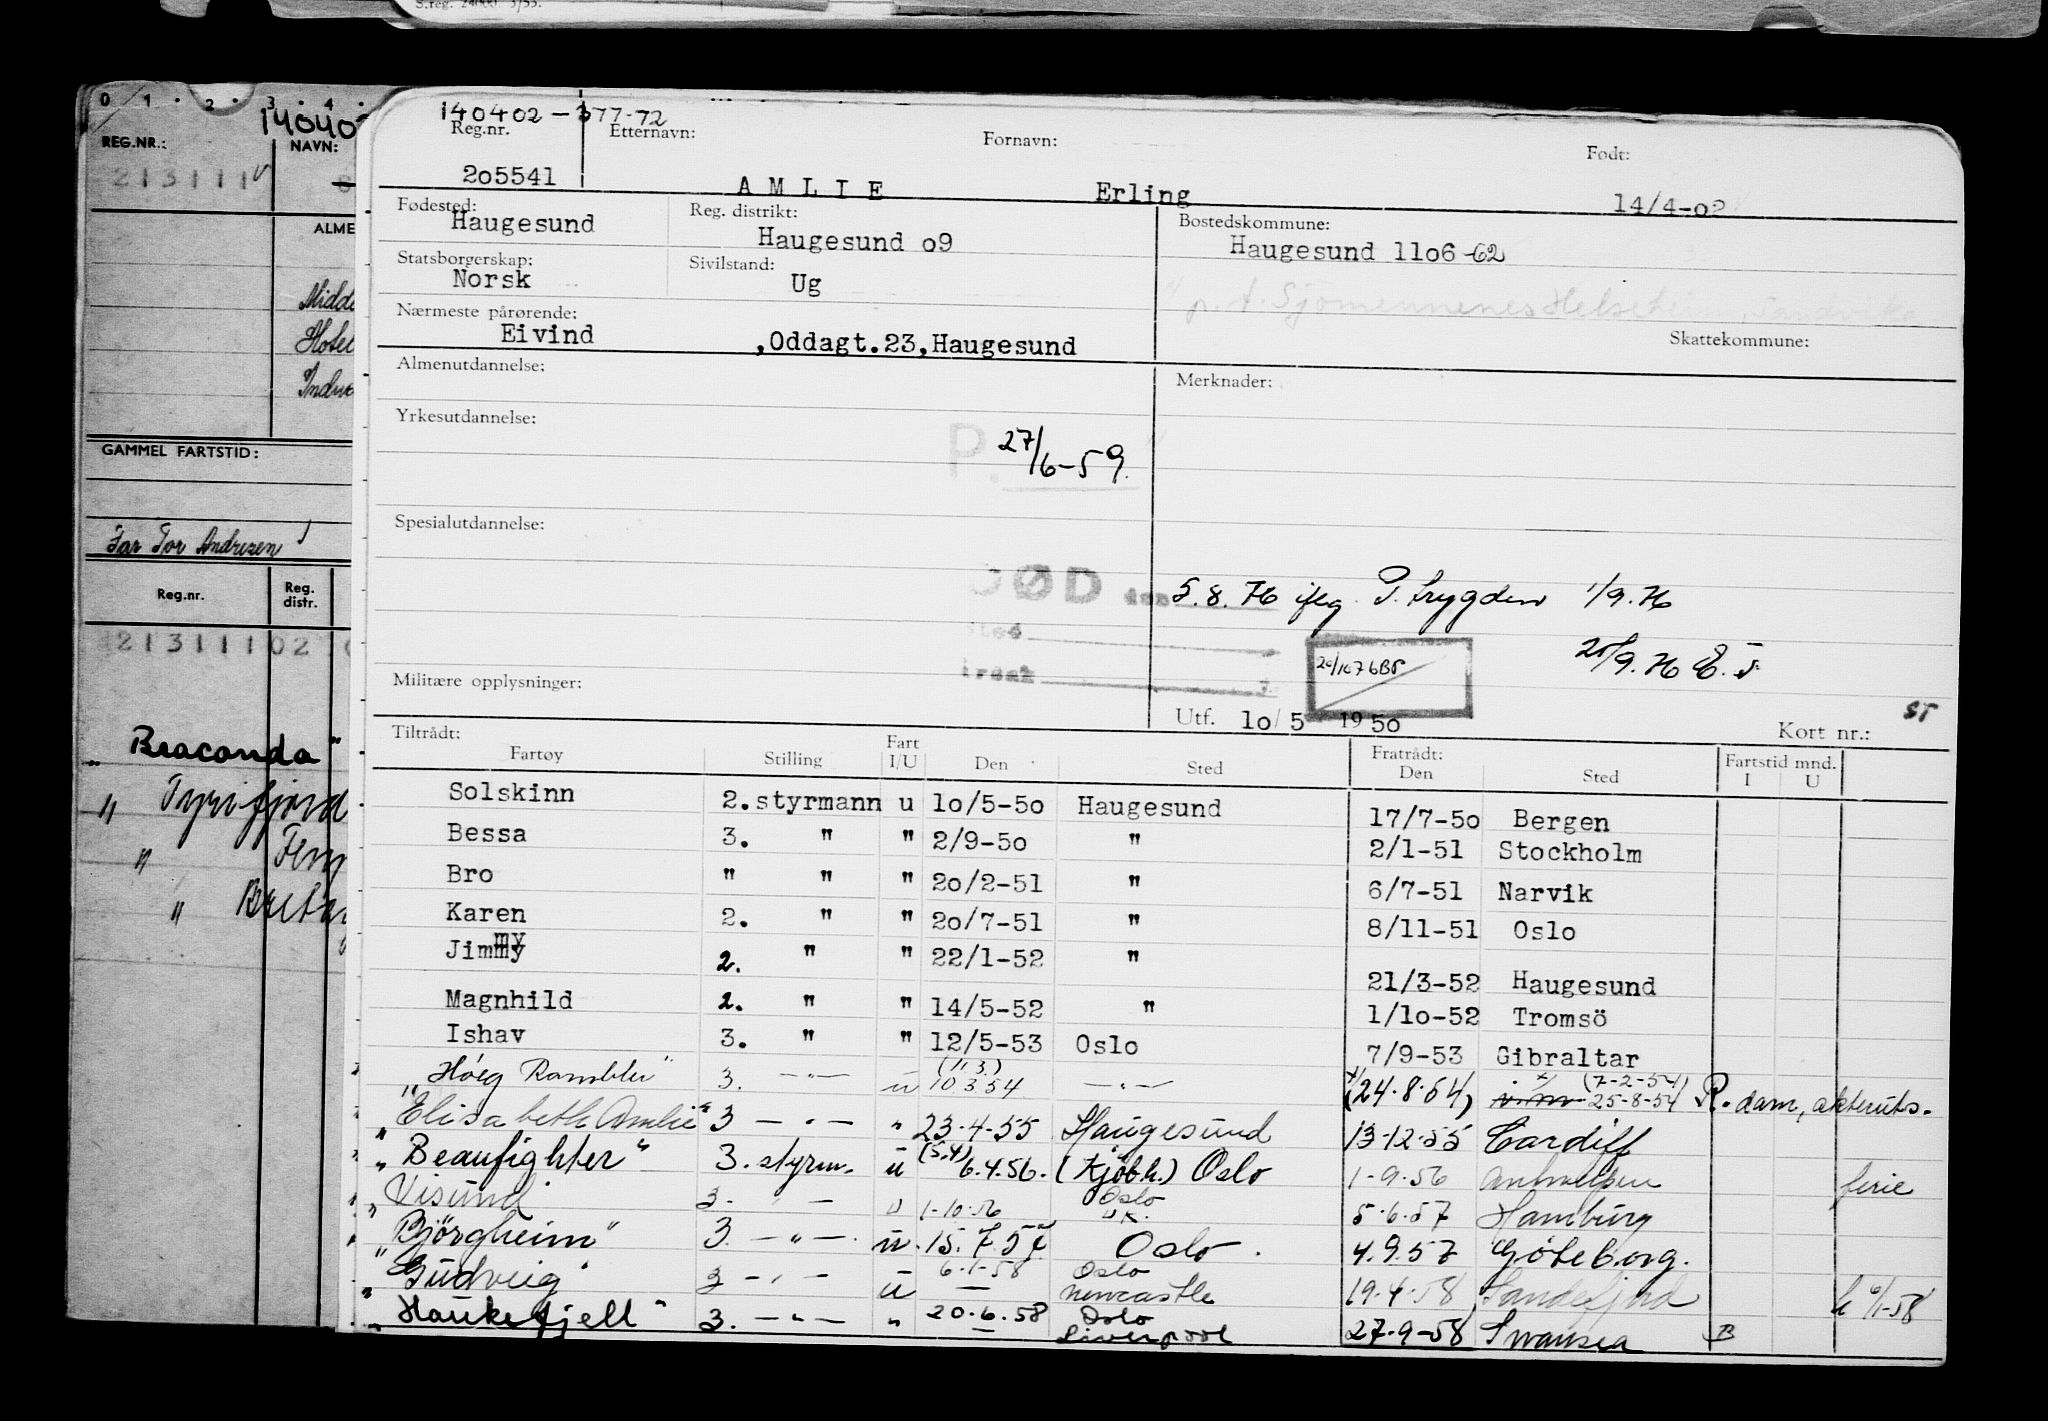 S.reg. 24000. 3/53.
0 1 . 2 . 3 . 4 .
14040
REG.NR.: NAVN:
213111 v
ALME
Midd
Hotel
GAMMEL FARTSTID:
Far Tor Andresen
Reg.nr. Reg. distr.
21311102
" Braconda "
" Tyrifjord
" Fer
" Breta
140402-377-72
Reg.nr. Etternavn: Fornavn: Født:
205541 A M L I E Erling 14/4-02
Fødested: Reg. distrikt: Bostedskommune:
Haugesund Haugesund o9 Haugesund 11o6-62
Statsborgerskap: Sivilstand:
Norsk Ug
p.t. Sjømennenes Helseheim, Sandvika
Nærmeste pårørende: Skattekommune:
Eivind ,Oddagt.23,Haugesund
Almenutdannelse: Merknader:
Yrkesutdannelse:
P. 27/6-59.
Spesialutdannelse:
DØD den 5.8.76 iflg. P. trygden 1/9.76
Sted
20/1076BS
Militære opplysninger:
Utf. 10/5 1950 Kort nr.: ST
Tiltrådt: Fart Fratrådt: Fartstid mnd.
Fartøy Stilling I/U Den Sted Den Sted I U
Solskinn 2.styrmann u 1o/5-5o Haugesund 17/7-5o Bergen
Bessa 3. " " 2/9-5o " 2/1-51 Stockholm
Bro " " " 2o/2-51 " 6/7-51 Narvik
Karen 2. " " 2o/7-51 " 8/11-51 Oslo
Jimmy 2. " " 22/1-52 " 21/3-52 Haugesund
Magnhild 2. " " 14/5-52 " 1/1o-52 Tromsö
Ishav 3. " " 12/5-53 Oslo 7/9-53 Gibraltar
" Höeg Rambler" 3. —"— u (11.3.) 10.3.54 —"— (24.8.54) (7-2-54) 25-8-54 R.dam, akteruts.
" Elisabeth Amlie" 3 —"— " 23.4.55 Haugesund 13-12-55 Cardiff
" Beaufighter" 3. styrm. u (5.4) 6.4.56. (Kjöbh.) Oslo 1-9.56 Antwerpen ferie
" Visund" 3. —"— u 1-10-56 Oslo UK. 5.6.57 Hamburg
" Björgheim" 3. —"— u. 15.7.57 Oslo. 4.9.57 Göteborg.
" Gudveig" 3 —"— u 6-1-58 Oslo Newcastle 19.4.58 Sandefjord
" Haukefjell" 3. —"— " 20.6.58 Oslo Liverpool 27.9-58 Swansea B